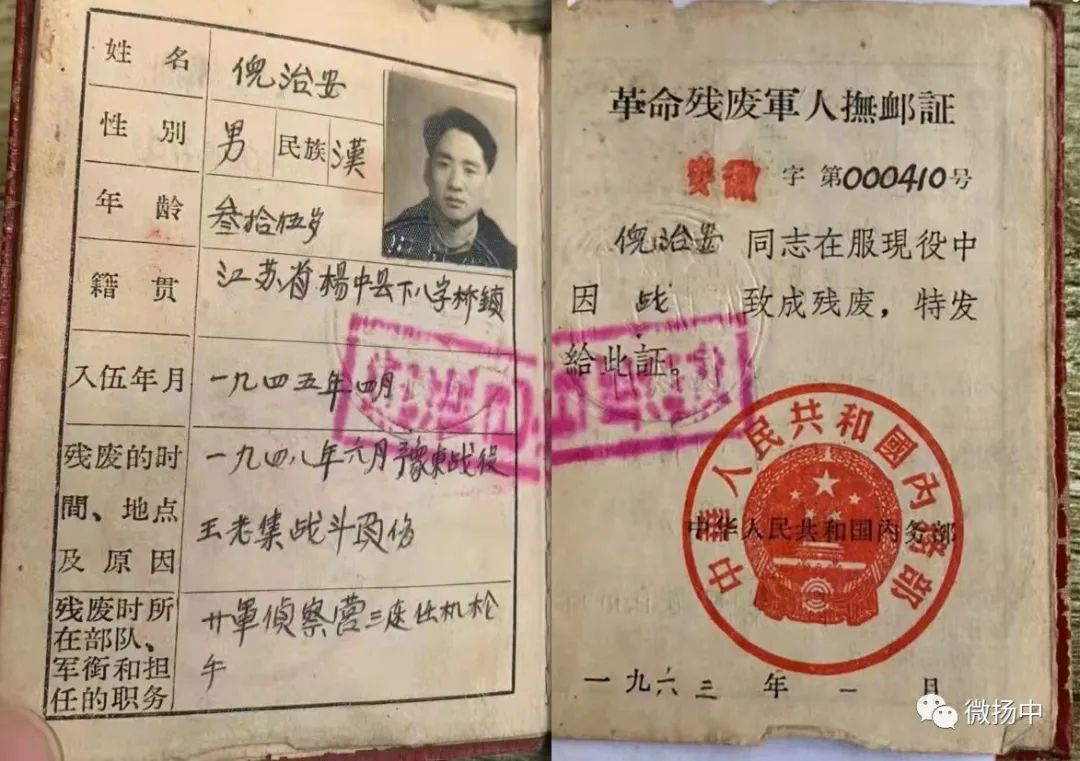 姓名
倪治安
性别
男
民族
漢
年龄
叁拾伍岁
籍贯
江苏省楊中县下八字桥鎮
入伍年月
一九四五年四月
残废的时
間、地点
及原因
一九四八年六月豫東战役
王老集战斗負伤
残废时所
在部队、
军銜和担
任的职务
廿軍偵察营三连任机枪
手
革命残废軍人撫卹証
字 第000410号
倪治安 同志在服現役中
因 战 致成残废，特发
給此証。
中華人民共和國內務部
中华人民共和国内务部
一九六三年一月
微扬中